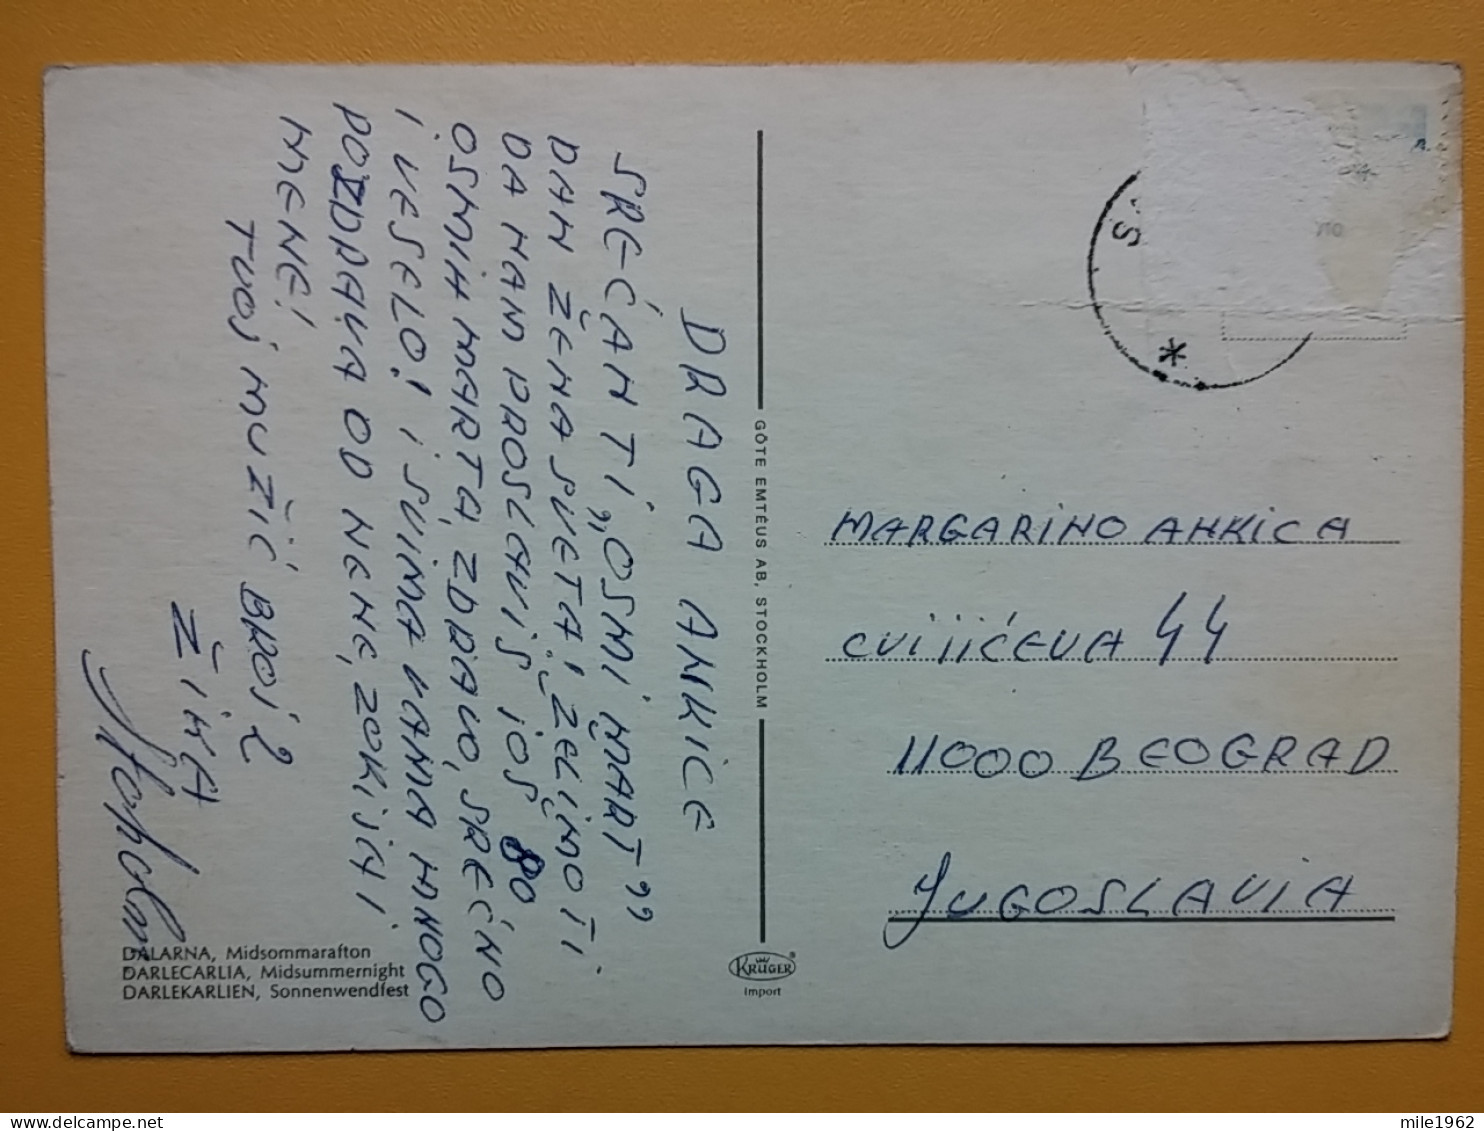 DRAGA ANKICE
SREĆAN TI „OSMI MART”
DAN ŽENA SVETA! ŽELIMO TI
DA NAM PROSLAVIŠ JOŠ 80
OSMIH MARTA, ZDRAVO, SREĆNO
I VESELO! I SVIMA VAMA MNOGO
POZDRAVA OD NENE, ZOKIJA I
MENE!
TVOJ MUŽIĆ BROJ 2
ŽIKA
Štokholm
DALARNA, Midsommarafton
DARLECARLIA, Midsummernight
DARLEKARLIEN, Sonnenwendfest
GÖTE EMTÉUS AB, STOCKHOLM
KRÜGER®
Import
S
MARGARINO ANKICA
CVIJIĆEVA 44
11000 BEOGRAD
JUGOSLAVIA
mile1962